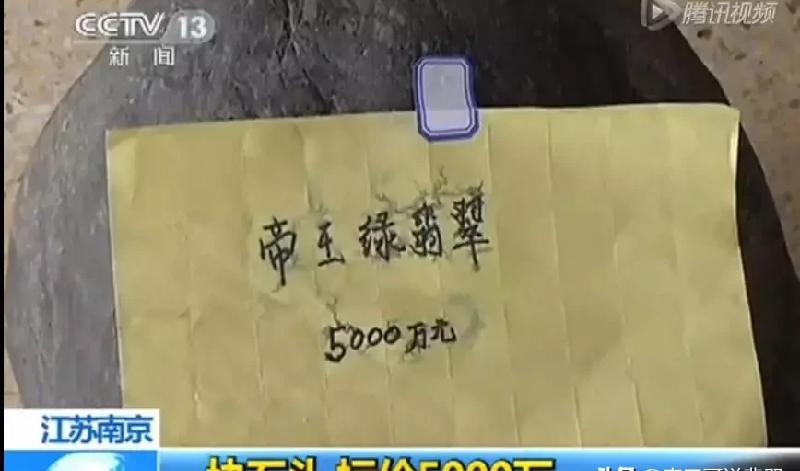 CCTV 13
新闻
腾讯视频
帝王绿翡翠
5000万元
江苏南京
块石头 标价5000万